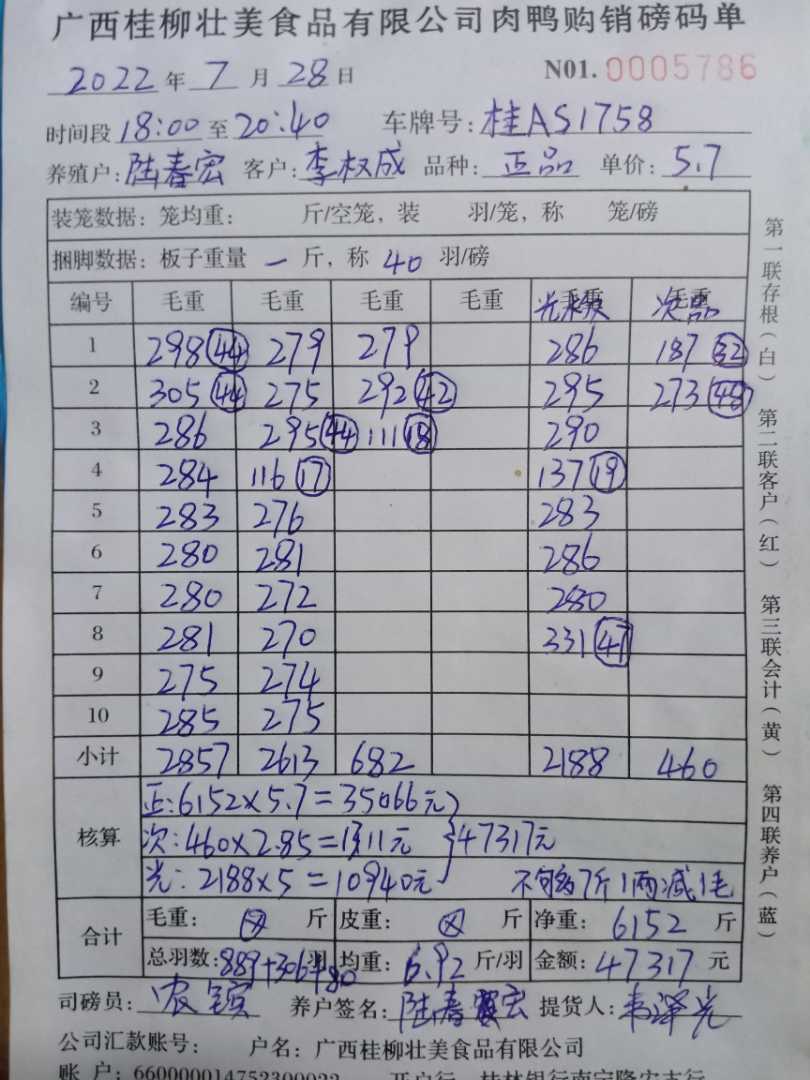 广西桂柳壮美食品有限公司肉鸭购销磅码单
2022年7月28日 N01. 0005786
时间段18:00至20:40 车牌号:桂AS1758
养殖户:陆春宏 客户:李权成 品种:正品 单价:5.7
装笼数据:笼均重: 斤/空笼,装 羽/笼,称 笼/磅
捆脚数据:板子重量 一 斤,称 40 羽/磅
编号 毛重 毛重 毛重 毛重 毛重 毛重 次品
1 298(44) 279 279 286 187(32)
2 305(44) 275 292(42) 295 273(48)
3 286 295(44) 111(18) 290
4 284 116(17) 137(19)
5 283 276 283
6 280 281 286
7 280 272 280
8 281 270 331(47)
9 275 274
10 285 275
小计 2857 2613 682 2188 460
核算
正:6152×5.7=35066元
次:460×2.85=1311元 }47317元
光:2188×5=10940元 不够7斤1两减1毛
合计
毛重: 斤 皮重: 斤 净重: 6152 斤
总羽数:889+306+80 羽 均重: 6.92 斤/羽 金额: 47317 元
司磅员: 农 养户签名: 陆春宏 提货人: 韦泽光
公司汇款账号: 户名:广西桂柳壮美食品有限公司
第一联存根(白) 第二联客户(红) 第三联会计(黄) 第四联养户(蓝)